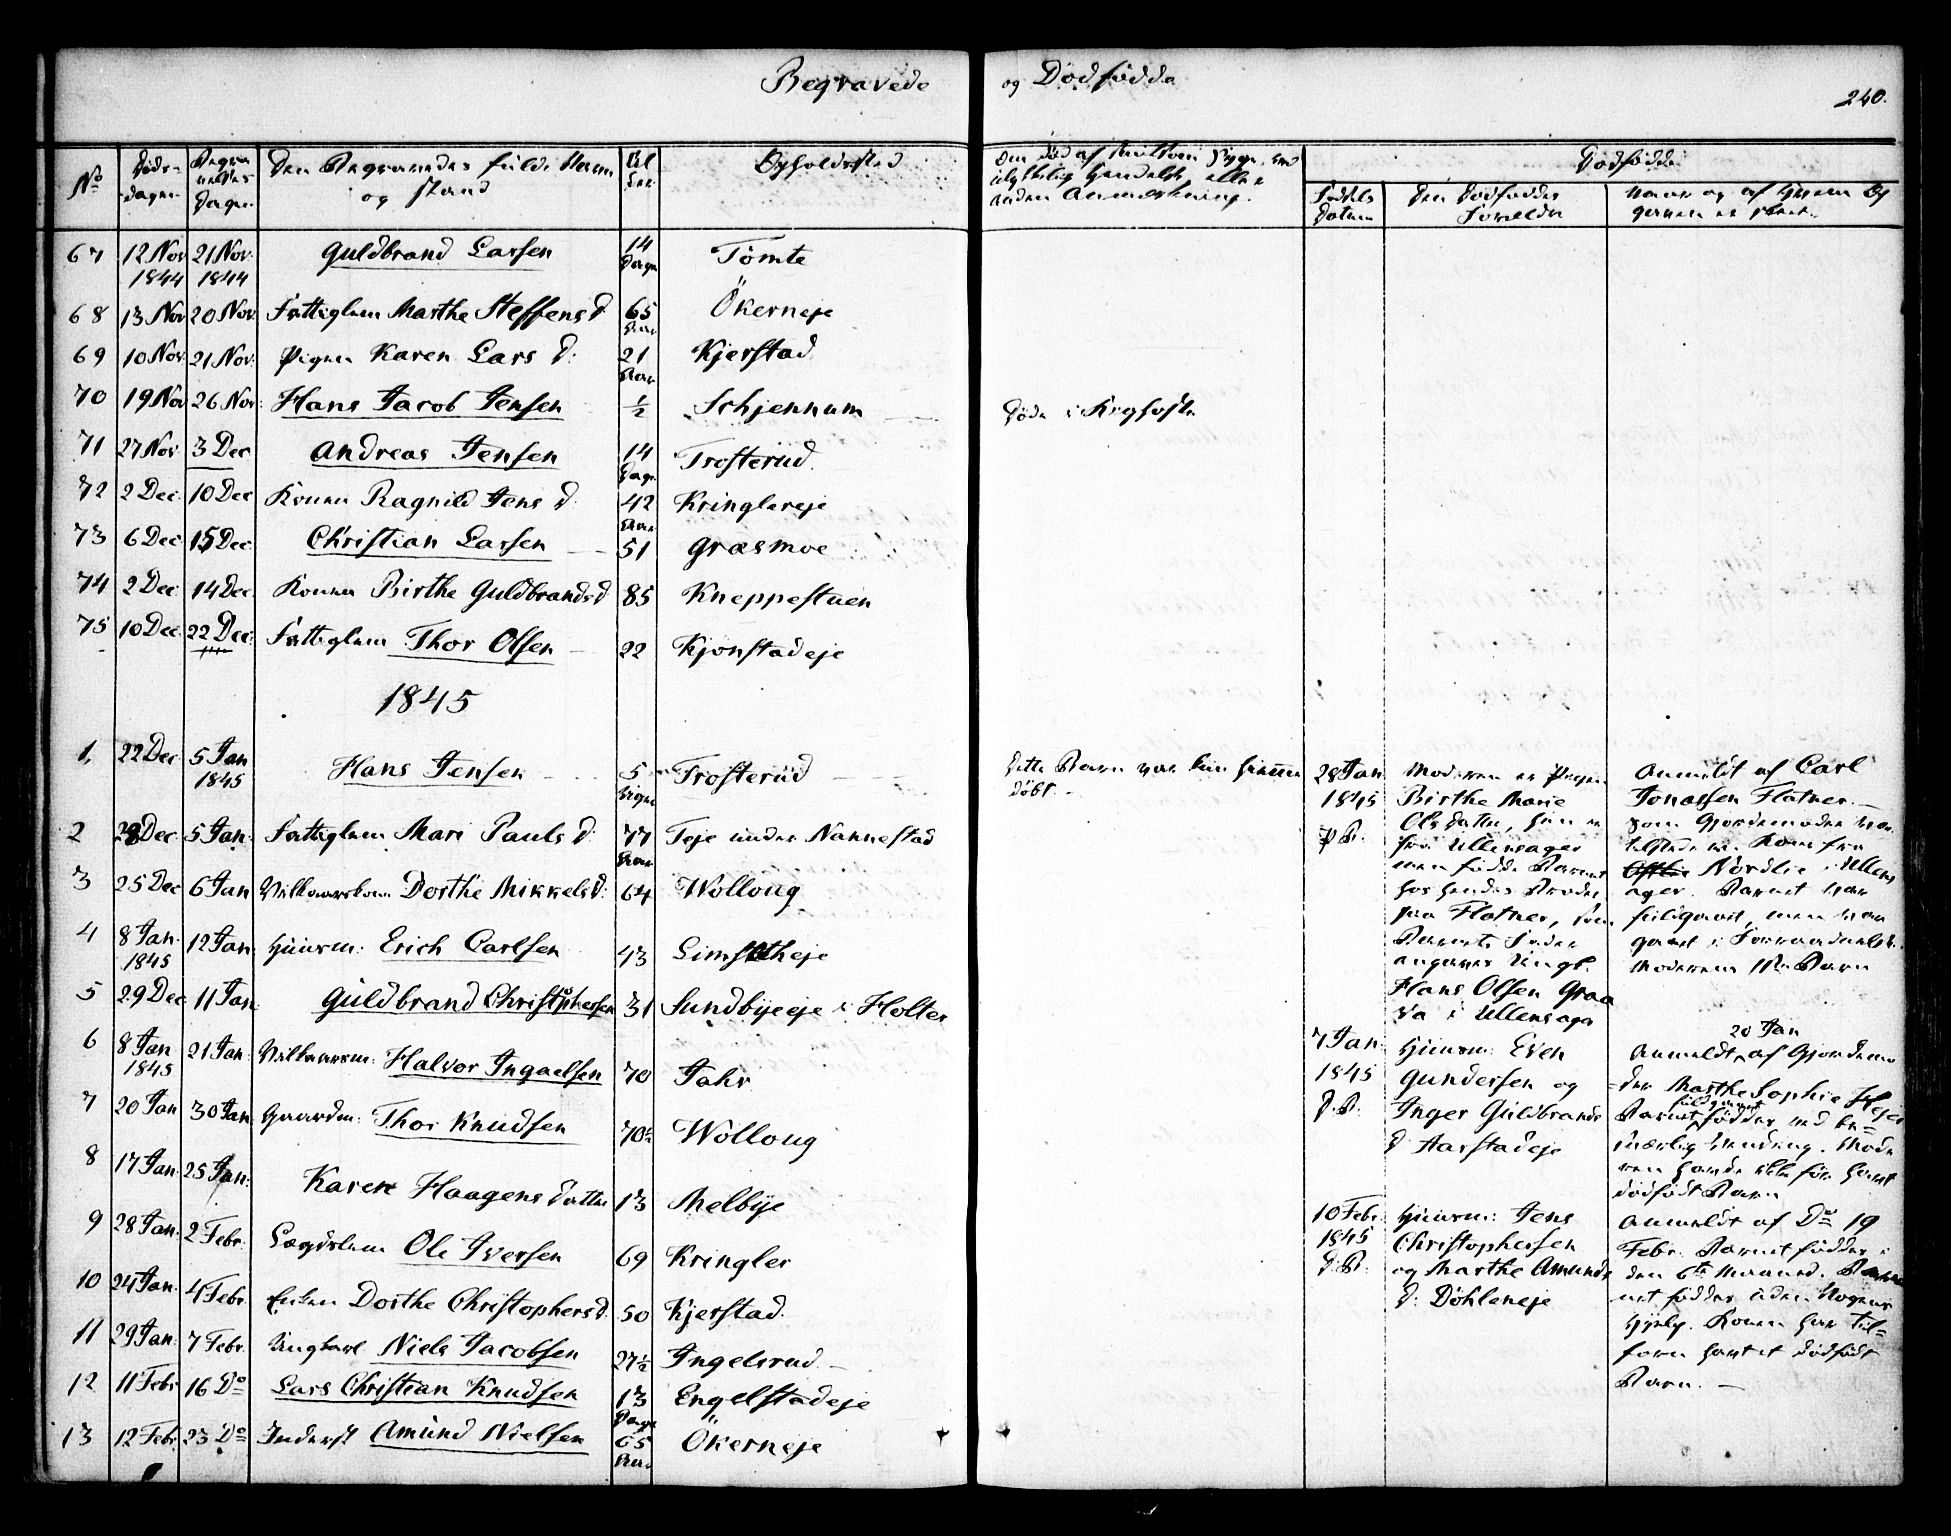 Begravede og Dødfødde
240.
No Døds-dagen Begravelses Dagen Den Begravedes fulde Navn og Stand Alder Opholdssted
67 12 Nov 1844 21 Nov: 1844 Guldbrand Larsen 14 Dage Tømte
68 13 Nov 20 Nov: Fattiglem Marthe Steffens D 65 Aar Ökerneje
69 10 Nov: 21 Nov: Pigen Karen Lars D: 21 Aar Kjerstad
70 19 Nov 26 Nov: Hans Jacob Jensen 1/2 Schjennum
71 27 Nov: 3 Dec Andreas Jensen 14 Dage Trosterud.
72 2 Dec: 10 Dec Konen Ragnild Jens D. 42 Aar Kringlereje
73 6 Dec 15 Dec: Christian Larsen 51 Græsmoe
74 2 Dec: 14 Dec: Konen Birthe Guldbrandsd 85 Kneppestuen
75 10 Dec: 22 Dec: Fattiglem Thor Olsen 22 Kjonstadeje
1845
1, 22 Dec 5 Jan 1845 Hans Jensen 5 Uger Trosterud
2 28 Dec 5 Jan: Fattiglem Mari Pauls D: 77 Aar Teje under Nannestad
3 25 Dec 6 Jan Vilkaarskone Dorthe Mikkelsd: 64 Wolloug
4 8 Jan: 1845 12 Jan: Huusm: Erich Carlsen 43 Limsætheje
5 29 Dec 11 Jan: Guldbrand Christophersen 31 Sundbyeeje i Holter
6 8 Jan 1845 21 Jan: Vilkaarsm: Halvor Ingaelsen 70 Jahr
7 20 Jan 30 Jan Gaardm: Thor Knudsen 70½ Wolloug
8 17 Jan: 25 Jan: Karen Haagens Datter 13 Melbye
9 28 Jan: 2 Febr: Lægdslem Ole Iversen 69 Kringler
10 24 Jan: 4 Febr. Enken Dorthe Christophersd: 50 Kjerstad.
11 29 Jan: 7 Febr. Ungkarl Niels Jacobsen 27½ Ingelsrud
12 11 Febr 16 Do Lars Christian Knudsen 13 Dage Engelstadeje
13 12 Febr. 23 Do Inderst Amund Nielsen 65 Aar Ökerneje
Om død af smitsom Syge, ved
ulykkelig Hændelse, eller
anden Anmærkning.
Dødfødde
Fødsels Datum
Den Dødføddes Forældre
Naar og af Hvem Opgaven er skeet.
Døde i Kighoste
Dette Barn var kun hjemme
døbt.
28 Jan
1845
P. B.
Moderen er Pigen
Birthe Marie
Olsdatter, hun er
fra Ullensager
men fødde Barnet
hos hendes Broder
paa Flatner, som
Barnets Fader
angaves Ungk.
Hans Olsen Graa
va i Ullensager
Anmeldt af Carl
Jonassen Flatner.
som Gjordemoder var
tilstede en Kone fra
Nordlie i Ullens
ager. Barnet var
fuldgaaet, men var
gaaet i Forraadnelse.
Moderens 1ste Barn
7 Jan:
1845
D. B.
Huusm: Even
Gundersen og
Inger Guldbrands
D Aarstadeje
20 Jan
Anmeldt af Gjordemo
der Marthe Sophie Hejer
fuldgaaet
Barnet fødder ved be=
sværlig Vending. Mode
ren havde ikke før havt
dødfødt Barn
10 Febr:
1845
D. B.
Huusm: Jens
Christophersen
og Marthe Amunds
D: Döhleneje
Anmeldt af Do 19
Febr. Barnet fødder i
den 6te Maaned. Bar
net fødder uden Nogens
Hjelp. Konen har til=
forn havt et dødfødt
Barn.